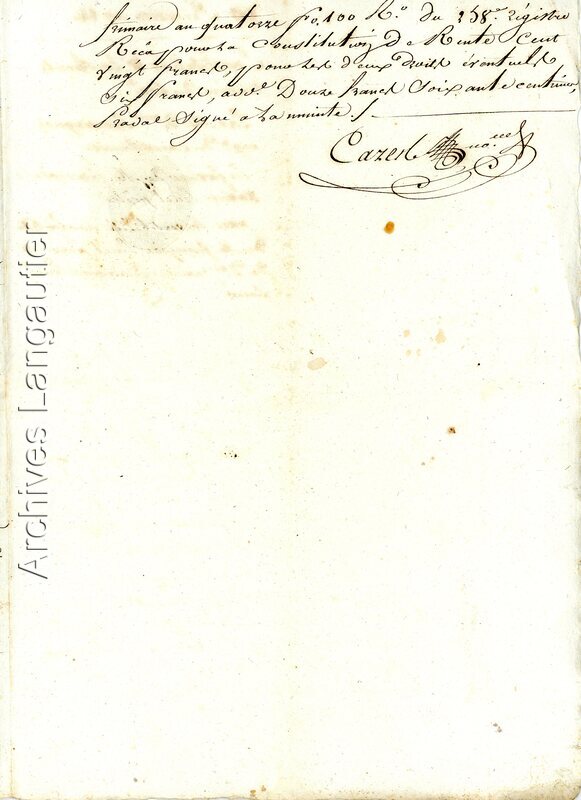 frimaire an quatorze fo. 100 Ro. du 258e. régistre
Reçû pour la constitution de Rente cent
vingt francs, pour les deux droits éventuels
six francs, avec Douze francs soixante centimes
signé a La minute ./.
Cazes
Archives Langautier